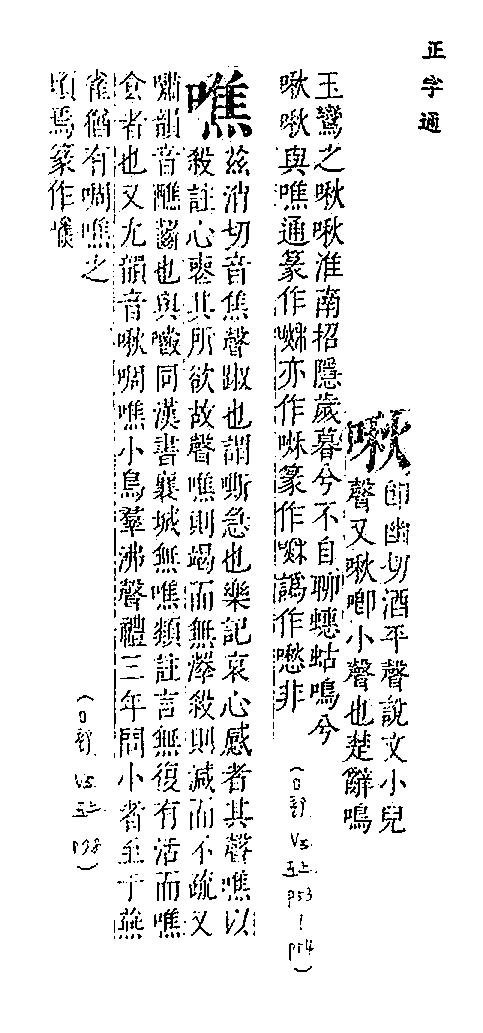 正字通
啾
節幽切酒平聲說文小兒
聲又啾唧小聲也楚辭鳴
玉鸞之啾啾淮南招隱歲暮兮不自聊蟪蛄鳴兮
啾啾與噍通篆作亦作篆作譌作非
(口部 V5. 五上. p53-p54)
噍
茲消切音焦聲踧也謂嘶急也樂記哀心感者其聲噍以
殺註心喪其所欲故聲噍則竭而無澤殺則減而不疏又
嘯韻音醮齧也與噍同漢書襄城無噍類註言無復有活而噍
食者也又尤韻音啾啁噍小鳥羣沸聲禮三年問小者至于燕
雀猶有啁噍之
頃焉篆作
(口部 V5. 五上. p98)